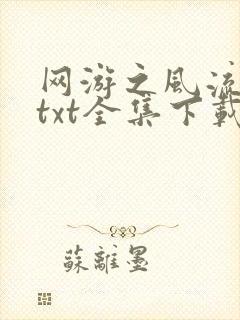 网游之风流
txt全集下载
蘇離墨